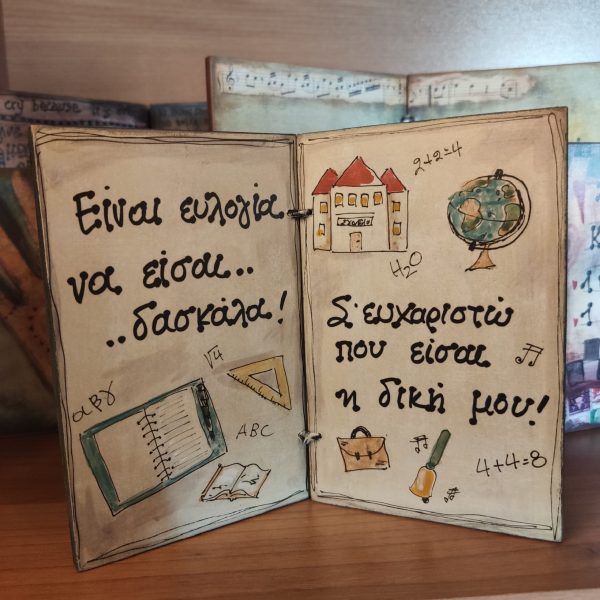 cry because
Είναι ευλογία
να είσαι..
..δασκάλα!
√4
αβγ
ABC
2+2=4
ΣΧΟΛΕΙΟ
H2O
Σ'ευχαριστώ
που είσαι
η δική μου!
4+4=8